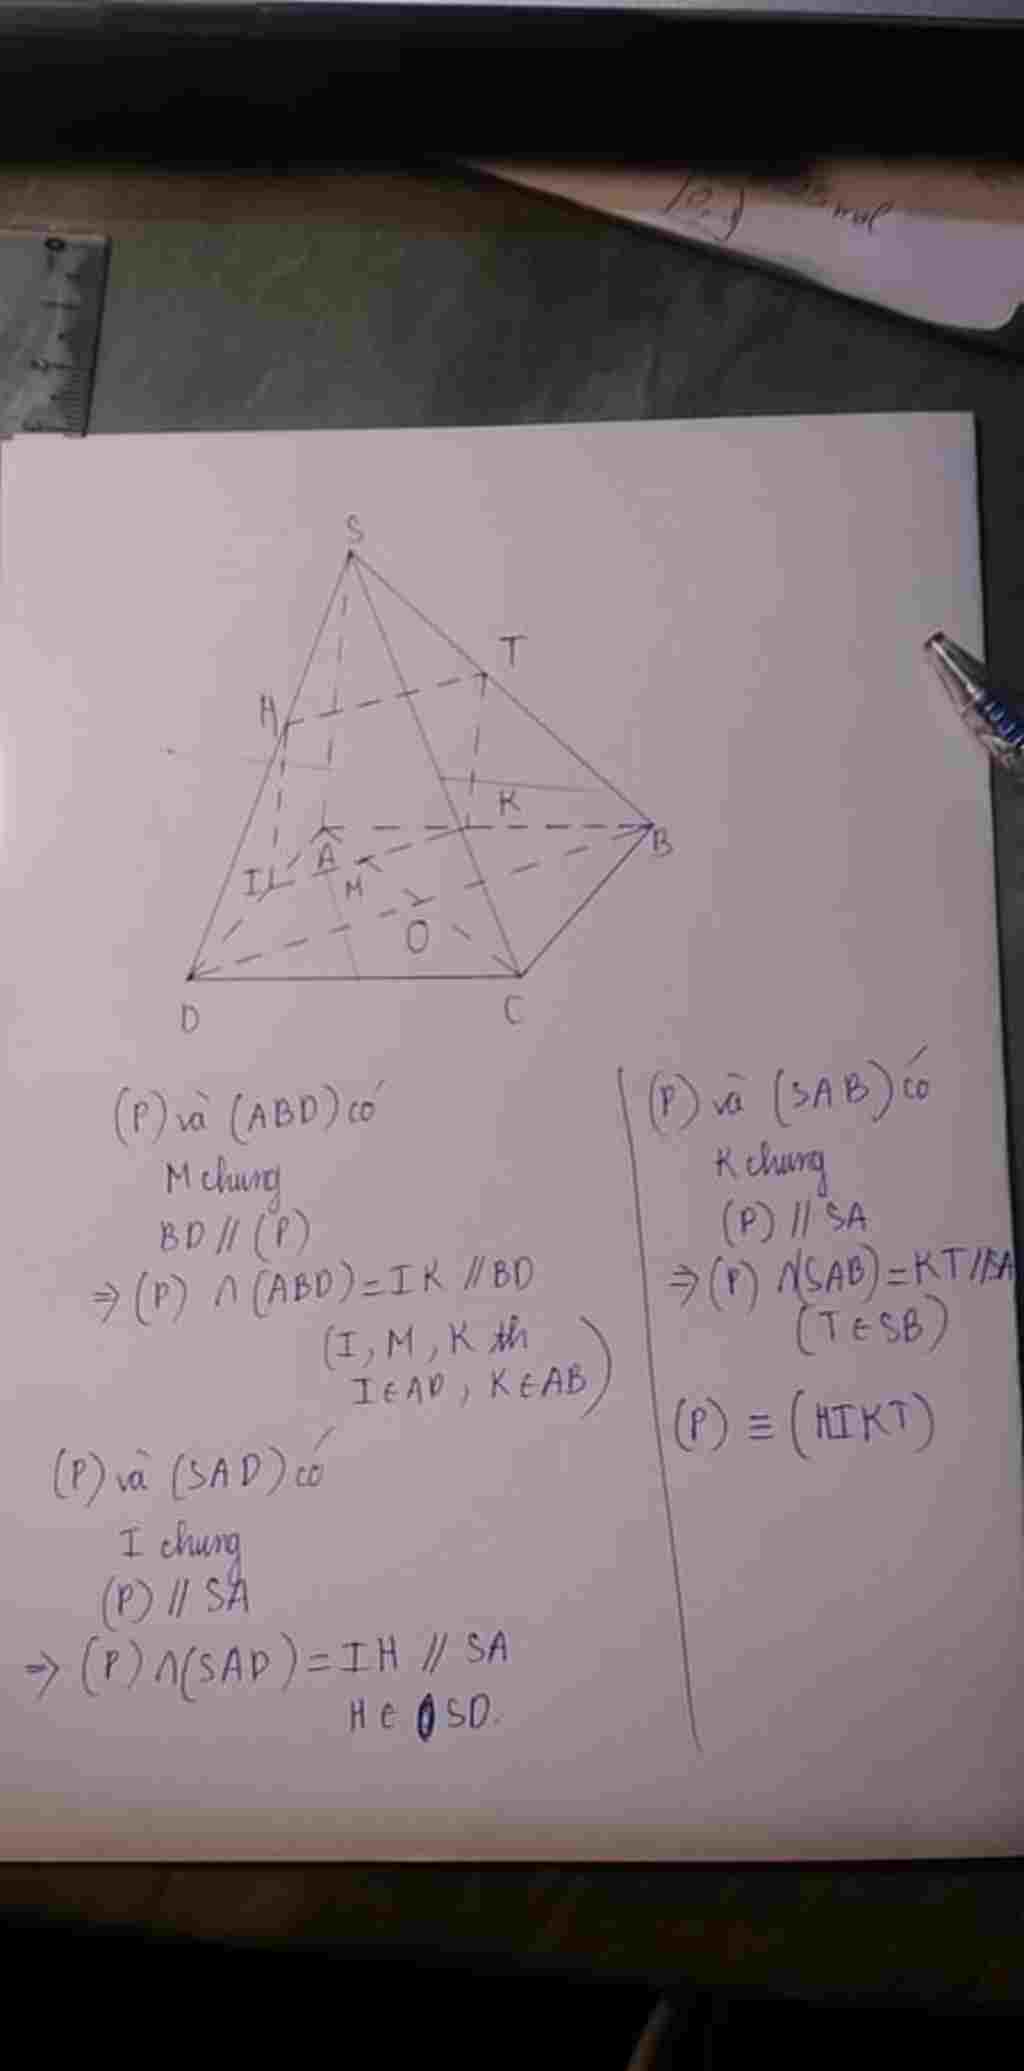 S
T
H
K
I
A
M
B
O
D
C
(P) và (ABD) có
M chung
BD // (P)
⇒ (P) ∩ (ABD) = IK // BD
(I, M, K th
I ∈ AD, K ∈ AB)
(P) và (SAD) có
I chung
(P) // SA
⇒ (P) ∩ (SAD) = IH // SA
H ∈ SD.
(P) và (SAB) có
K chung
(P) // SA
⇒ (P) ∩ (SAB) = KT // SA
(T ∈ SB)
(P) ≡ (HIKT)